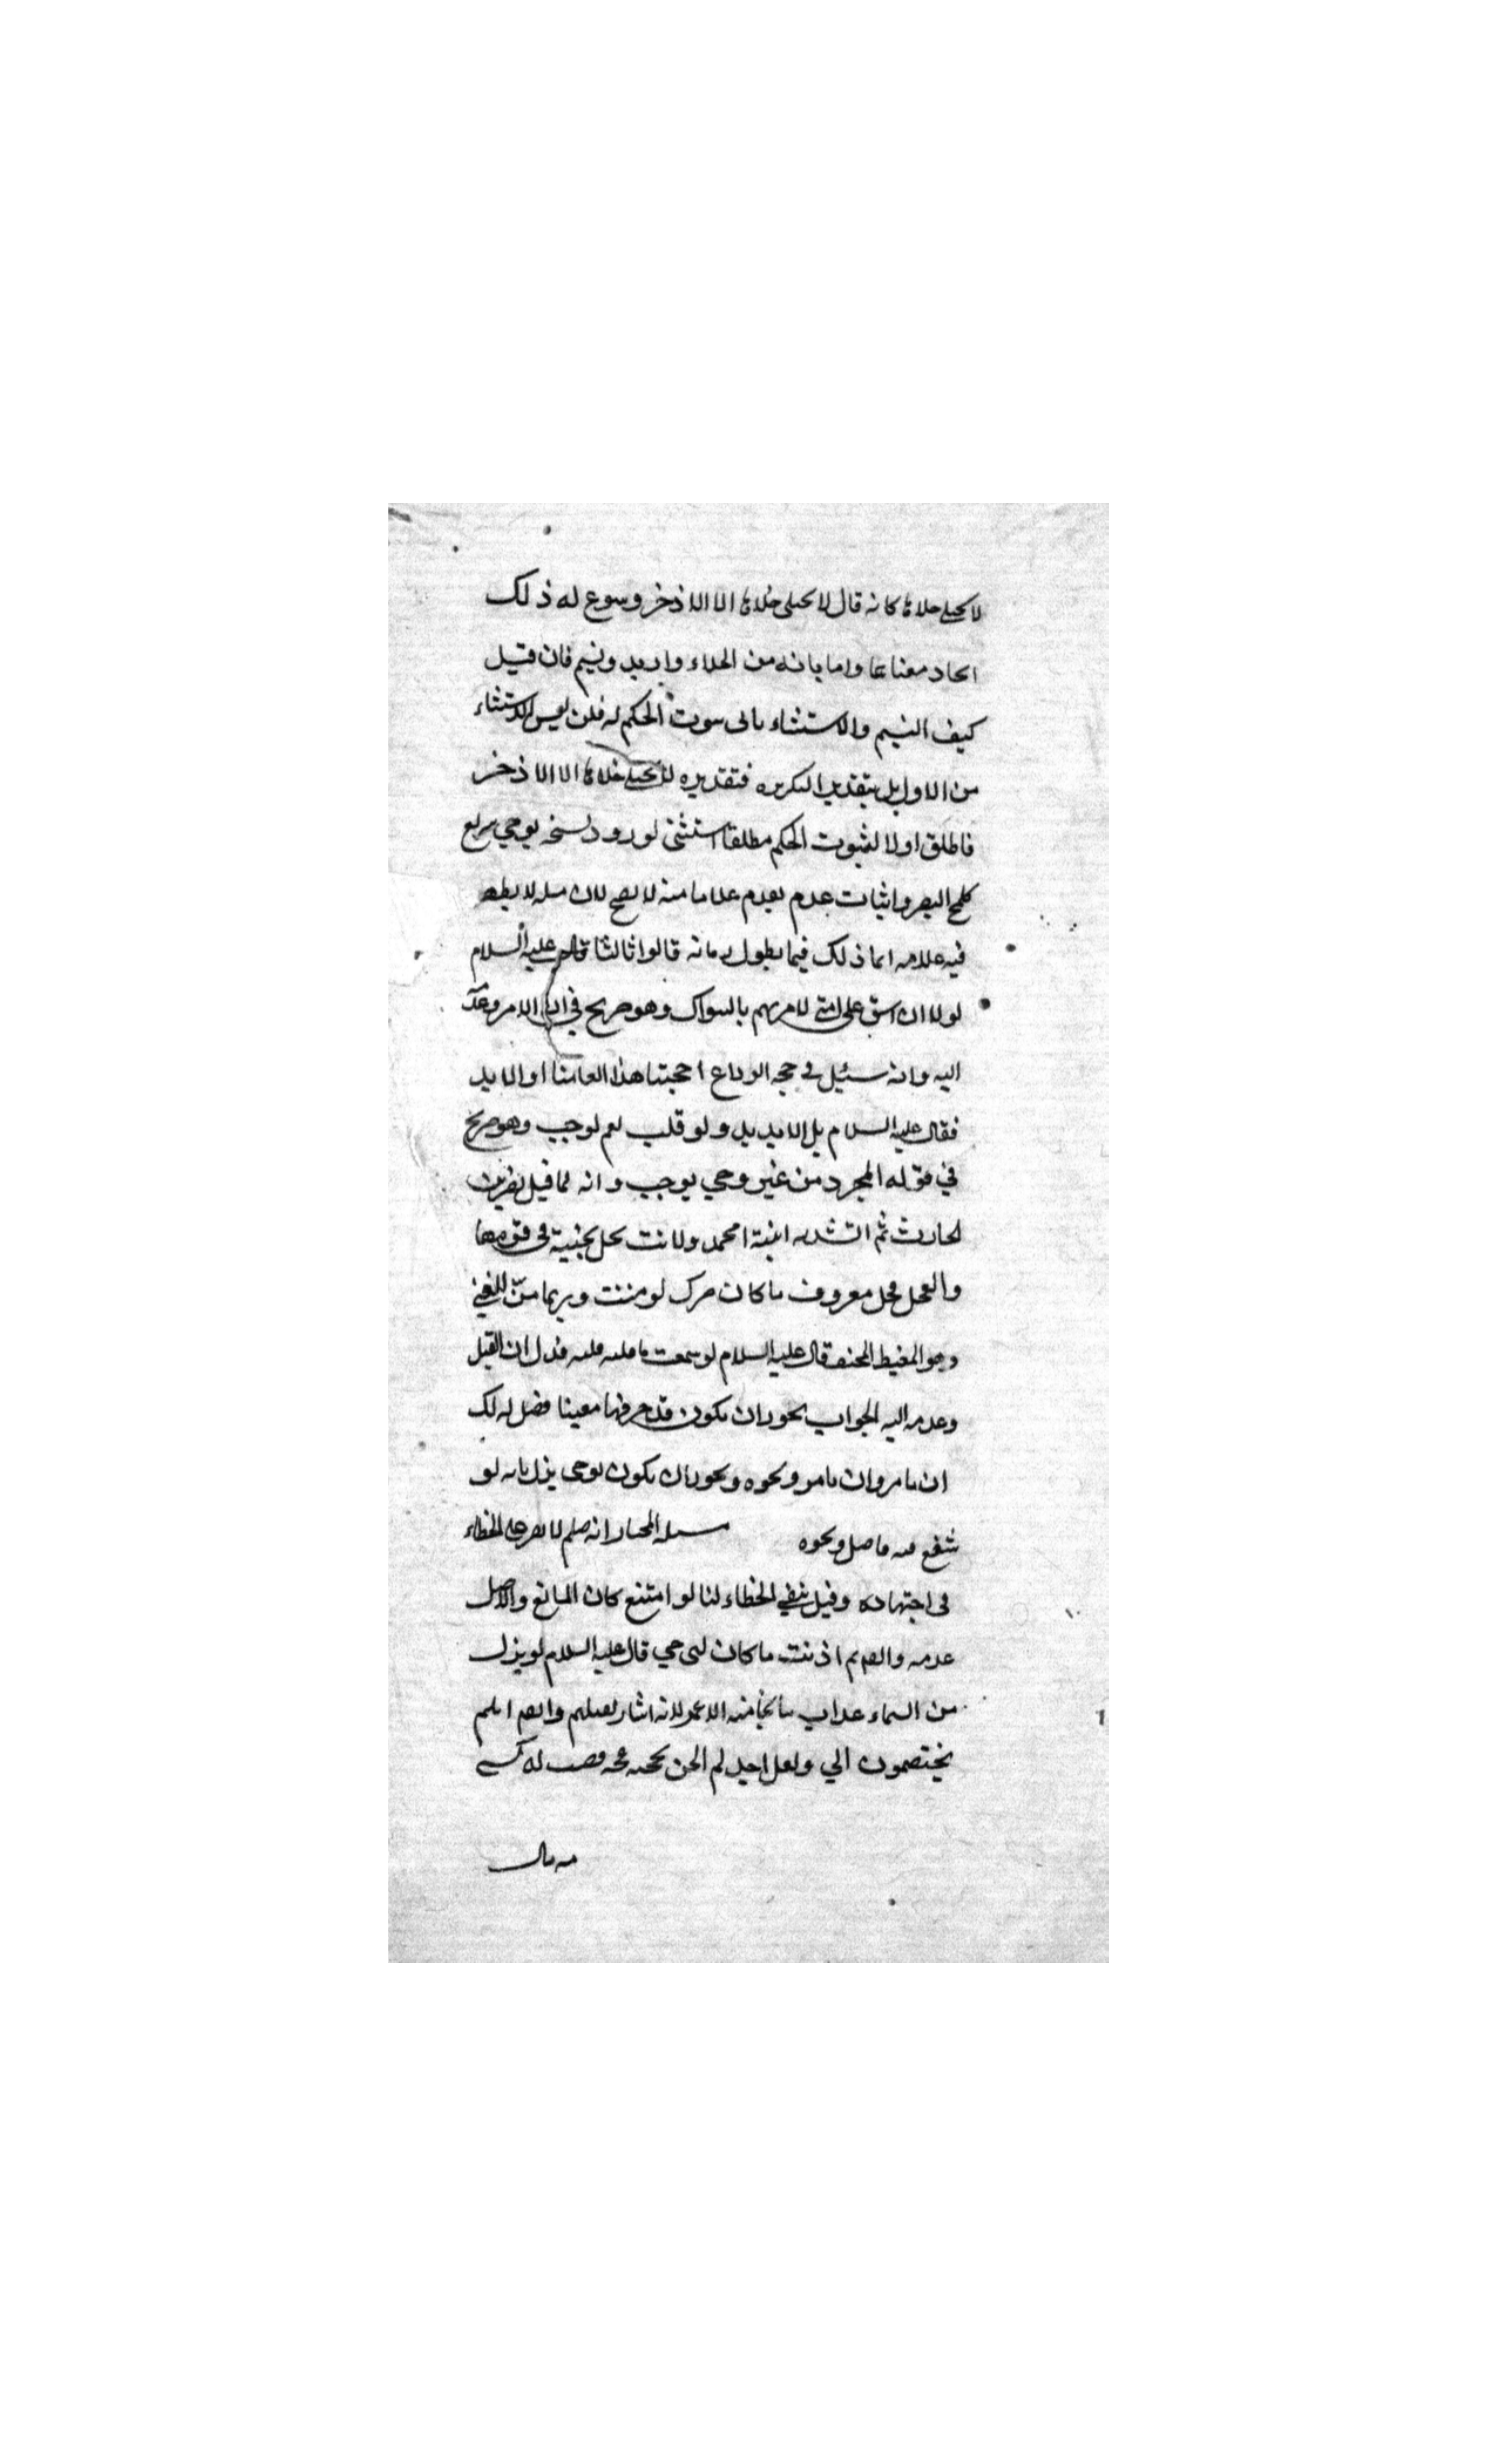 لا يختلى خلاها كانه قال لا يختلى خلاها الا الاذخر وسوغ له ذلك
اتحاد معناهما واما بانه من الخلاء واريد ونسخ فان قيل
كيف النسخ والاستثناء يابى ثبوت الحكم له قلت ليس الاستثناء
من الاول بل بتقدير التكرير فتقديره لا يختلى خلاها الا الاذخر
فاطلق اولا لثبوت الحكم مطلقا استثنى لورود نسخه بوحي سريع
كلمح البصر واثبات عدم علامامنه لا يصح لان مثله لا يظهر
فيه علامه انما ذلك فيما يطول زمانه قالوا ثالثا قال عليه السلام
لولا ان اشق على امتي لامرتهم بالسواك وهو صريح في ان الامر وعدمه
اليه وانه سئيل في حجه الوداع احجتنا هذا لعامنا او للابد
فقال عليه السلام بل للابد ولو قلت نعم لوجب وهو صريح
في قوله المجرد من غير وحي يوجب وانه لما قيل نضر بن
الحارث ثم انشدته ابنته امحمد ولانت نجل نجيبة في قومها
والفحل فحل معروف ما كان ضرك لو مننت وربما منّ الفتى
وهو المغيظ المحنق قال عليه السلام لو سمعت ما قتلته فدل ان القتل
وعدمه اليه الجواب يجوز ان يكون قد خير فيها معينا فقيل له لك
ان تامر وان لا تامر ونحوه ويجوز ان يكون بوحي نزل بانه لو
شفع فيه ونحوه مسئله المختار انه صلم لا يقر على الخطاء
في اجتهاده وقيل بنفي الخطاء لنا لو امتنع كان المانع والاصل
عدمه اذنت ما كان لنبي قال عليه السلام لو نزل
من السماء عذاب ما نجا منه الا عمر لانه اشار بقتلهم وايضا انكم
تختصمون الي ولعل احدكم الحن بحجته
من مال